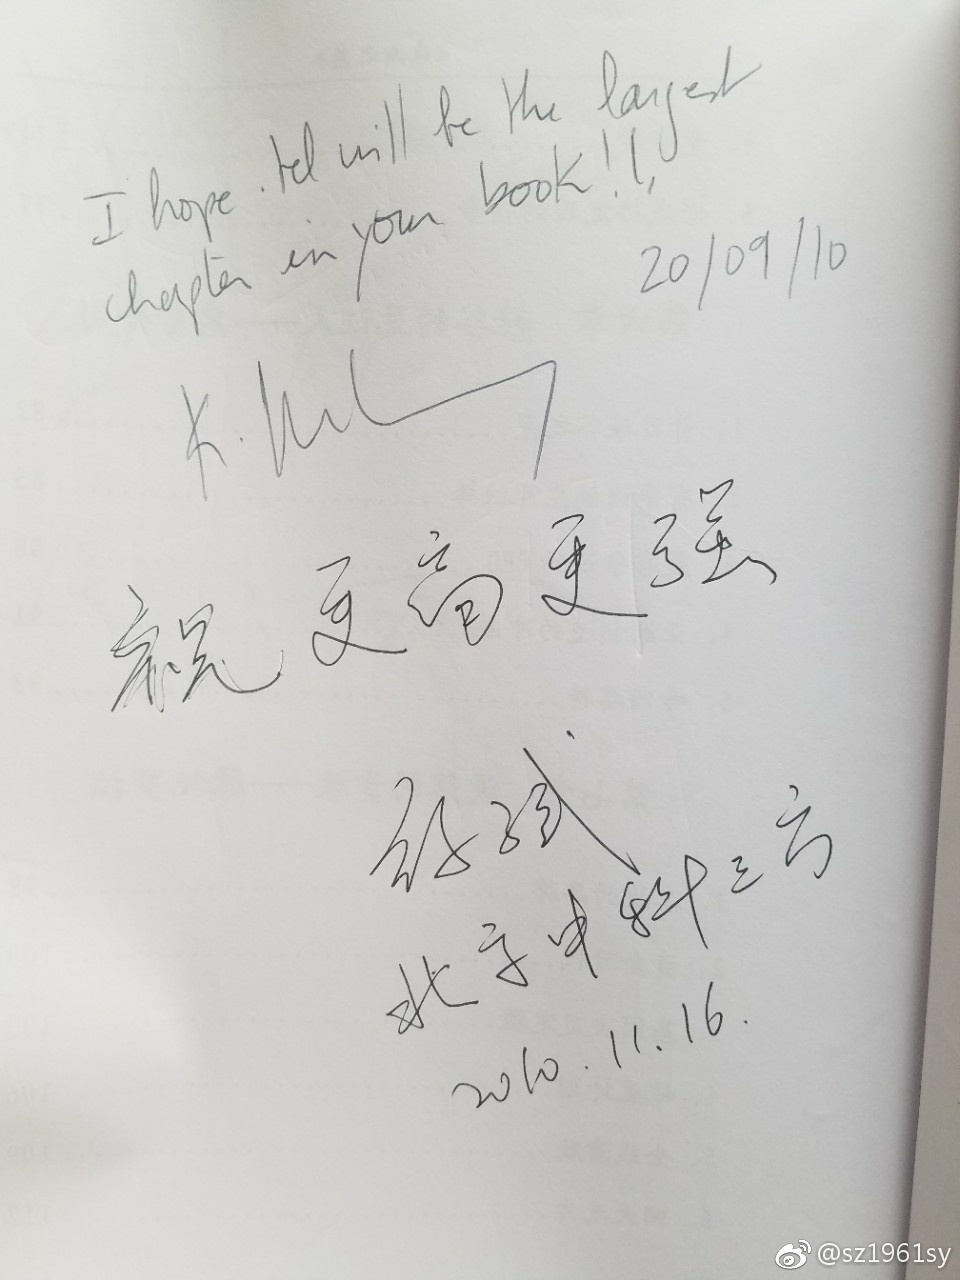 I hope .tel will be the largest
chapter in your book!!!
20/09/10
K.
祝 更高更强
北京中科三方
2010.11.16.
@sz1961sy